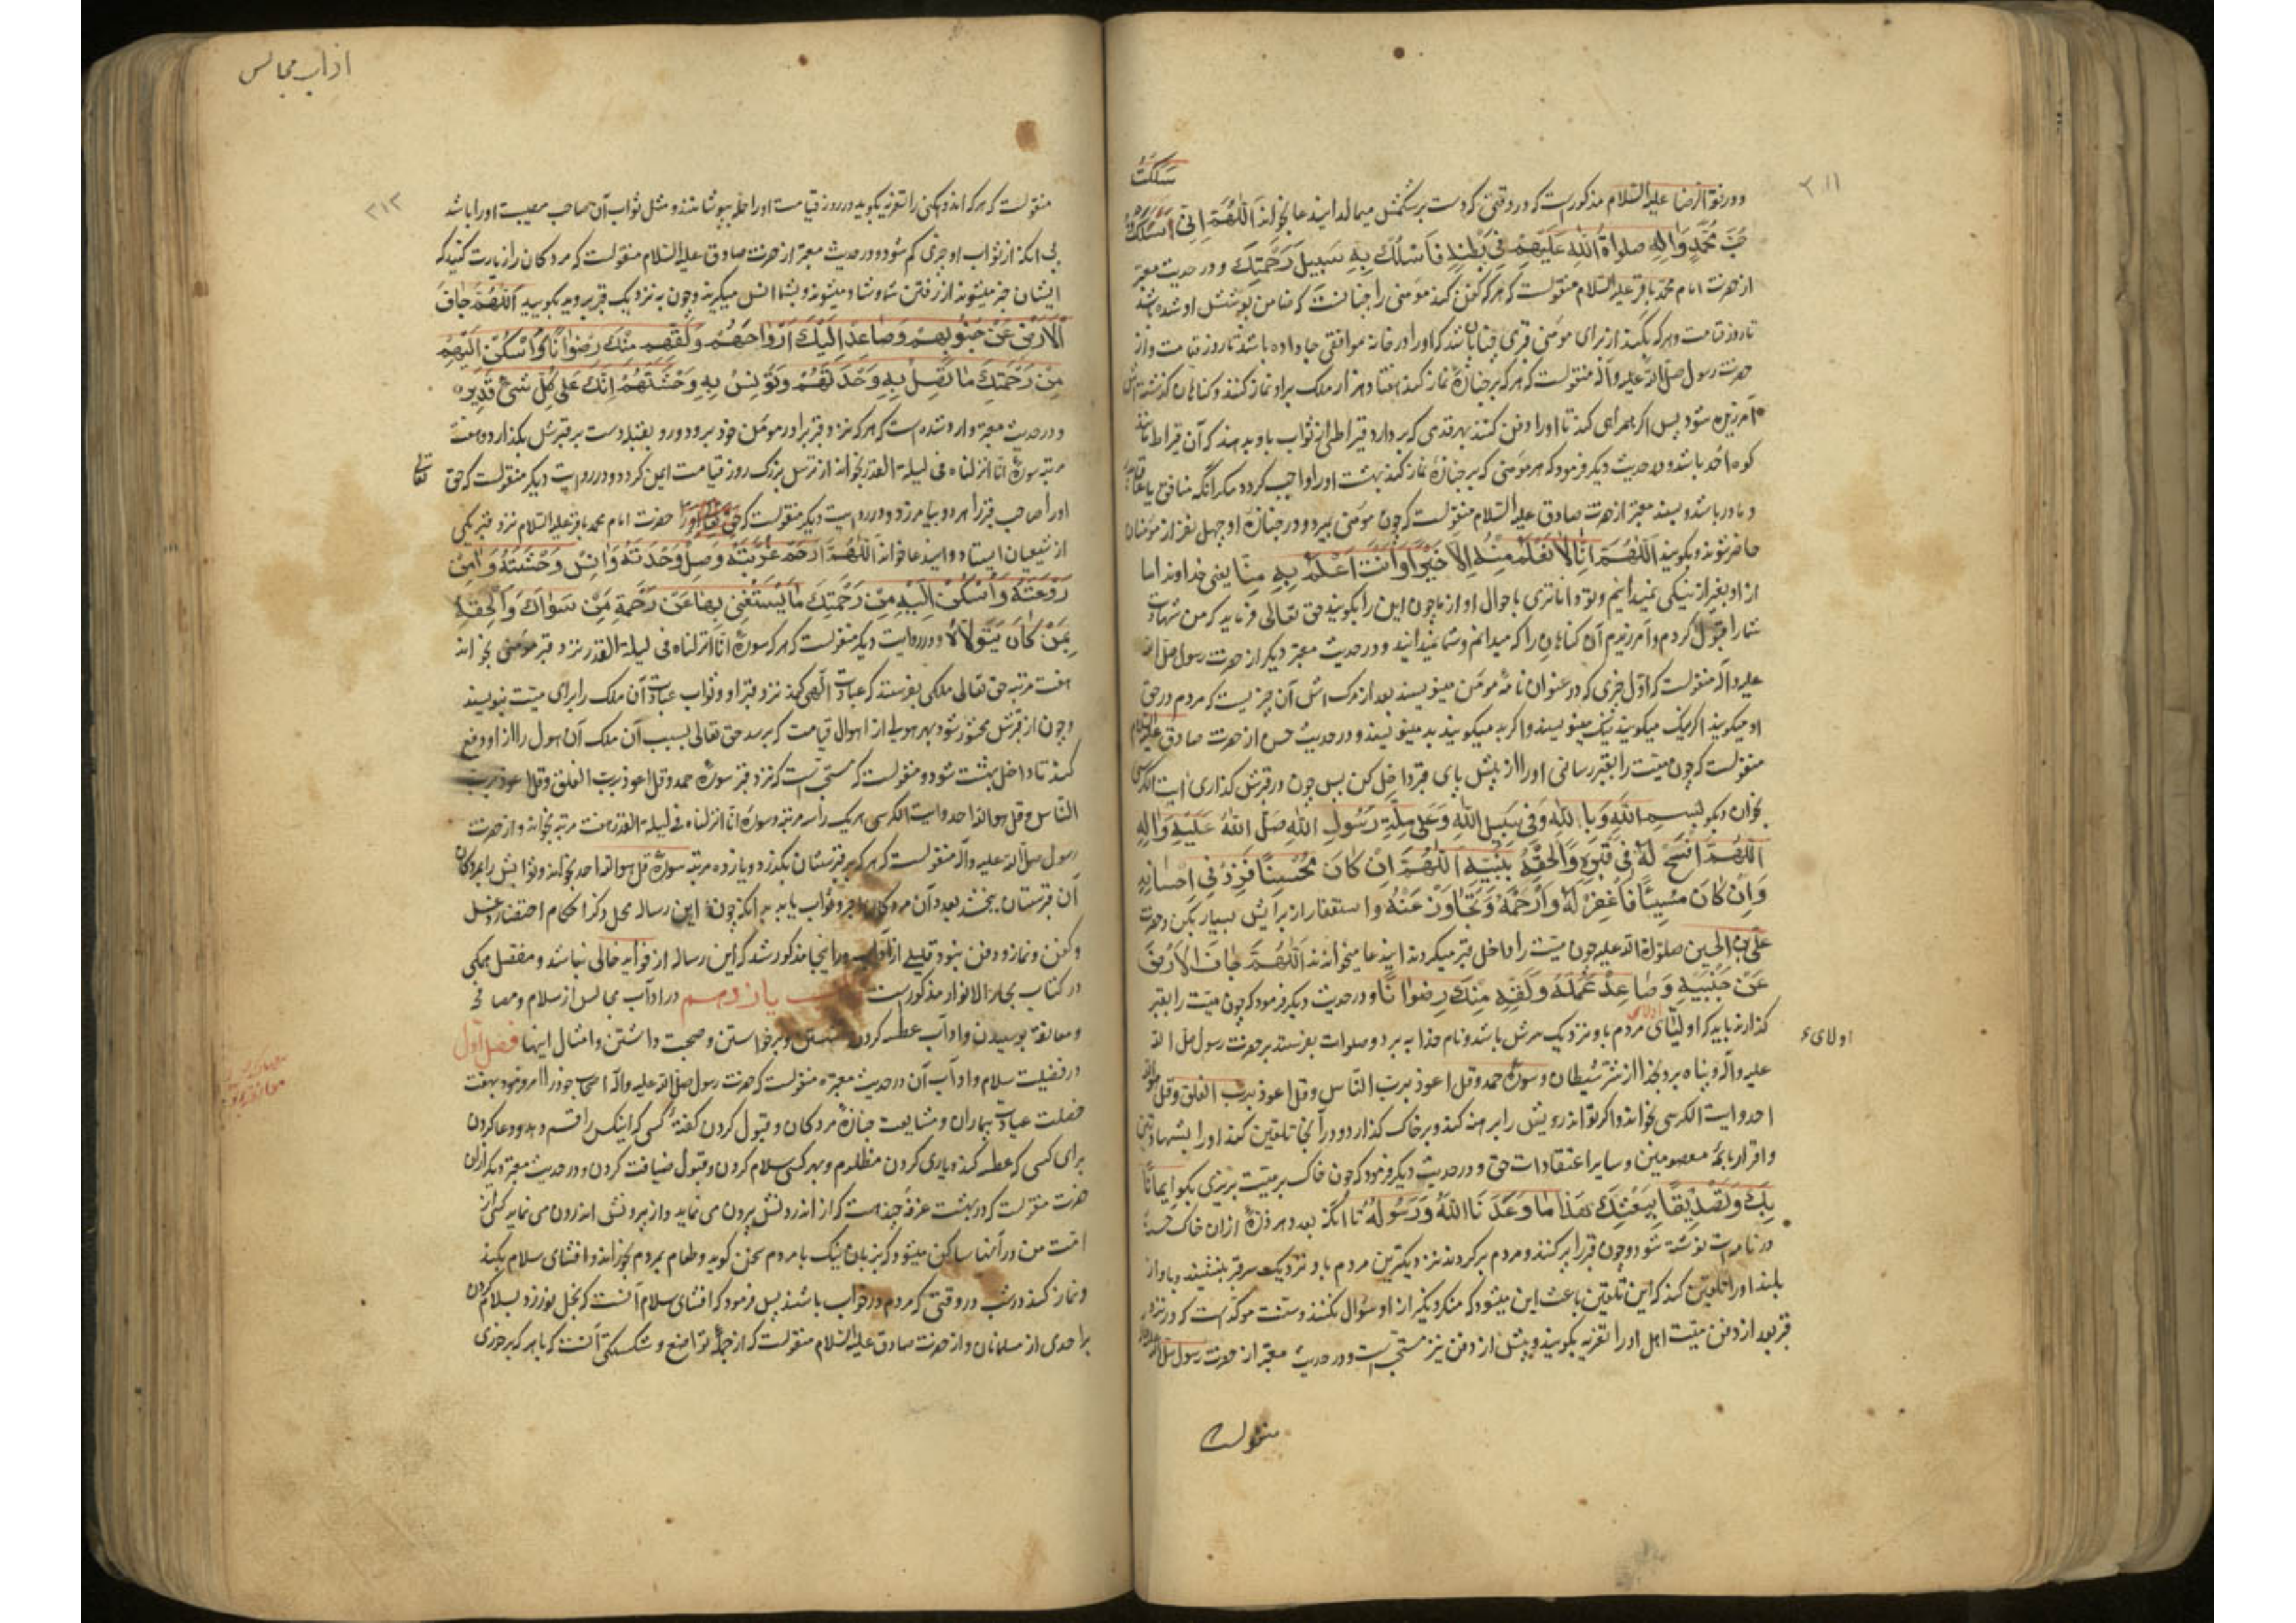 ۳۱۱
سَلَکْتُ
و در فقه الرضا علیه السلام مذکورست که در وقتی که دست بر شکمش میمالد این دعا بخواند اَللّٰهُمَّ اِنّی
حُبَّ مُحَمَّدٍ وَاٰلِهِ صلواةُ اللهِ عَلَیْهِمْ فی بَطْنِهِ فَاسْلُکْ بِهِ سَبیلَ رَحْمَتِکَ و در حدیث معتبر
از حضرت امام محمد باقر علیه السلام منقولست که هر که کفن کند مؤمنی را چنانست که ضامن پوشش او شده باشد
تا روز قیامت و هر که بکند از برای مؤمنی قبری چنان باشد که او را در خانه موافقی جا داده باشد تا روز قیامت و از
حضرت رسول صلی الله علیه و آله منقولست که هر که بر جنازهٔ نماز کند هفتاد هزار ملک بر او نماز کنند و کناهان کذشته اش
آمرزیده شود پس اکر همراهی کند تا او را دفن کنند بهر قدمی که بردارد قیراطی از ثواب باو بدهند که آن قیراط مانند
کوه احد باشد و در حدیث دیکر فرمود که هر مؤمنی که بر جنازهٔ نماز کند بهشت او را واجب کردد مکر آنکه منافق یا عاق پدر
و مادر باشد و بسند معتبر از حضرت صادق علیه السلام منقولست که چون مؤمنی بمیرد و در جنازهٔ او چهل نفر از مؤمنان
حاضر شوند و بکویند اَللّٰهُمَّ اِنّا لاٰ نَعْلَمُ مِنْهُ اِلاّٰ خَیْرًا وَاَنْتَ اَعْلَمُ بِهِ مِنّا یعنی خداوندا ما
از او بغیر از نیکی نمیدانیم و تو داناتری باحوال او از ما چون این را بکویند حق تعالی فرماید که من شهادت
شما را قبول کردم و آمرزیدم آن کناهان را که میدانم و شما نمیدانید و در حدیث معتبر دیکر از حضرت رسول صلی الله
علیه و آله منقولست که اوّل چیزی که در عنوان نامهٔ مؤمن مینویسند بعد از مرک اش آن چیزیست که مردم در حق
او میکویند اکر نیک میکویند نیک مینویسند و اکر بد میکویند بد مینویسند و در حدیث حسن از حضرت صادق علیه السلام
منقولست که چون میّت را بقبر رسانی او را از پیش پای قبر داخل کن پس چون در قبرش کذاری آیت الکرسی
بخوان و بکو بِسمِ اللهِ وَبِاللّٰهِ وَفی سَبیلِ اللهِ وَعَلی مِلَّةِ رَسُولِ اللهِ صَلَّی اللهُ عَلَیْهِ وَاٰلِهِ
اَللّٰهُمَّ افْسَحْ لَهُ فی قَبْرِهِ وَاَلْحِقْهُ بِنَبِیِّهِ اَللّٰهُمَّ اِنْ کٰانَ مُحْسِنًا فَزِدْ فی اِحْسانِهِ
وَاِنْ کٰانَ مُسیئًا فَاغْفِرْ لَهُ وَارْحَمْهُ وَتَجٰاوَزْ عَنْهُ و استغفار از برایش بسیار بکن و حضرت
علی بن الحسین صلوة الله علیه چون میّت را داخل قبر میکردند این دعا میخواندند اَللّٰهُمَّ جٰافِ الْاَرْضَ
عَنْ جَنْبَیْهِ وَصٰاعِدْ عَمَلَهُ وَلَقِّهِ مِنْکَ رِضْوٰانًا و در حدیث دیکر فرمود که چون میّت را بقبر
کذارند باید که اولیای مردم باو نزدیک سرش باشد و نام خدا ببرد و صلوات بفرستد بر حضرت رسول صلی الله
اولای
علیه و آله و پناه برد بخدا از شر شیطان و سورهٔ حمد و قل اعوذ برب الناس و قل اعوذ برب الفلق و قل هو الله
احد و ایت الکرسی بخواند و اکر تواند رویش را برهنه کند و بر خاک کذارد و در آنجا تلقین کند او را بشهادتین
و اقرار بائمهٔ معصومین و سایر اعتقادات حق و در حدیث دیکر فرمود که چون خاک بر میّت بریزی بکو ایمٰانًا
بِکَ وَتَصْدیقًا بِبَعْثِکَ هٰذا مٰا وَعَدَنَا اللهُ وَرَسُولُهُ تا آنکه بعدد هر ذرهٔ از آن خاک حسنهٔ
در نامه ات نوشته شود و چون قبر را پر کنند و مردم برکردند نزدیکترین مردم باو نزدیک سر قبر بنشیند و باواز
بلند او را تلقین کند که این تلقین باعث این میشود که منکر و نکیر از او سؤال نکنند و سنّت مؤکد است که در نزد
قبر بعد از دفن میّت اهل او را تعزیه بکویند و پیش از دفن نیز مستحبّ است و در حدیث معتبر از حضرت رسول صلی الله علیه و آله
منقولست
اداب مجالس
۳۱۲
منقولست که هر که اندوهکینی را تعزیه بکوید در روز قیامت او را حلّه بپوشانند و مثل ثواب آن صاحب مصیبت او را باشد
بی انکه از ثواب او چیزی کم شود و در حدیث معتبر از حضرت صادق علیه السلام منقولست که مردکان را زیارت کنید که
ایشان خبر میشوند از رفتن شما و شاد میشوند و بشما انس میکیرند و چون به نزدیک قبر بروید بکویید اَللّٰهُمَّ جٰافِ
الْاَرْضَ عَنْ جُنُوبِهِمْ وَصٰاعِدْ اِلَیْکَ اَرْوٰاحَهُمْ وَلَقِّهِمْ مِنْکَ رِضْوٰانًا وَاَسْکِنْ اِلَیْهِمْ
مِنْ رَحْمَتِکَ مٰا تَصِلُ بِهِ وَحْدَتَهُمْ وَتُؤْنِسُ بِهِ وَحْشَتَهُمْ اِنَّکَ عَلٰی کُلِّ شَیْءٍ قَدیر
و در حدیث معتبر وارد شده است که هر که نزد قبر برادر مؤمن خود برود و رو بقبله دست بر قبرش بکذارد و هفت
مرتبه سورهٔ انا انزلناه فی لیلة القدر بخواند از ترس بزرک روز قیامت ایمن کردد و در روایت دیکر منقولست که حق تعالی
او را و صاحب قبر را هر دو بیامرزد و در روایت دیکر منقولست که حضرت امام محمد باقر علیه السلام نزد قبر یکی
از شیعیان ایستاد و این دعا خواند اَللّٰهُمَّ ارْحَمْ غُرْبَتَهُ وَصِلْ وَحْدَتَهُ وَاٰنِسْ وَحْشَتَهُ وَاٰمِنْ
رَوْعَتَهُ وَاَسْکِنْ اِلَیْهِ مِنْ رَحْمَتِکَ مٰا یَسْتَغْنی بِهٰا عَنْ رَحْمَةِ مَنْ سِوٰاکَ وَاَلْحِقْهُ
بِمَنْ کٰانَ یَتَوَلّاٰهُ و در روایت دیکر منقولست که هر که سورهٔ انّا انزلناه فی لیلة القدر نزد قبر مؤمنی بخواند
هفت مرتبه حق تعالی ملکی بفرستد که عبادت الهی کند نزد قبر او و ثواب عبادت آن ملک را برای میّت بنویسند
و چون از قبرش محشور شود بهر هولی از اهوال قیامت که برسد حق تعالی بسبب آن ملک آن هول را از او دفع
کند تا داخل بهشت شود و منقولست که مستحبّ است که نزد قبر سورهٔ حمد و قل اعوذ برب الفلق و قل اعوذ برب
النّاس و قل هو الله احد و ایت الکرسی هریک را سه مرتبه و سورهٔ انّا انزلناه فی لیلة القدر هفت مرتبه بخواند و از حضرت
رسول صلی الله علیه و آله منقولست که هر که بر قبرستان بکذرد و یازده مرتبه سورهٔ قل هو الله احد بخواند و ثوابش را بمردکان
آن قبرستان ببخشد بعدد آن مردکان اجر و ثواب یابد بدانکه چون این رساله محل ذکر احکام احتضار و غسل
و کفن و نماز و دفن نبود قلیلی از آداب در اینجا مذکور شد که این رساله از فواید خالی نباشد و مفصل همکی
در کتاب بحار الانوار مذکورست باب یازدهم در اداب مجالس از سلام و مصافحه
و معانقه و بوسیدن و اداب عطسه کردن و نشستن و برخواستن و صحبت داشتن و امثال اینها فصل اول
در فضیلت سلام و اداب آن در حدیث معتبر منقولست که حضرت رسول صلی الله علیه و اله اصحاب خود را امر فرمود بهفت
خصلت عیادت بیماران و مشایعت جنازهٔ مردکان و قبول کردن کفتهٔ کسی که اینکس را قسم دهد و دعا کردن
برای کسی که عطسه کند و یاری کردن مظلوم و بهر کسی سلام کردن و قبول ضیافت کردن و در حدیث معتبر دیکر از ان
حضرت منقولست که در بهشت غرفهٔ چند هست که از اندرونش بیرون می نماید و از بیرونش اندرون می نماید کسی از
امّت من در آنها ساکن میشود که بزبان نیک با مردم سخن کوید و طعام بمردم بخوراند و افشای سلام بکند
و نماز کند در شب در وقتی که مردم در خواب باشند پس فرمود که افشای سلام آنست که بخل نورزد بسلام کردن
بر احدی از مسلمانان و از حضرت صادق علیه السلام منقولست که از جملهٔ تواضع و شکستکی آنست که با هر که برخوری